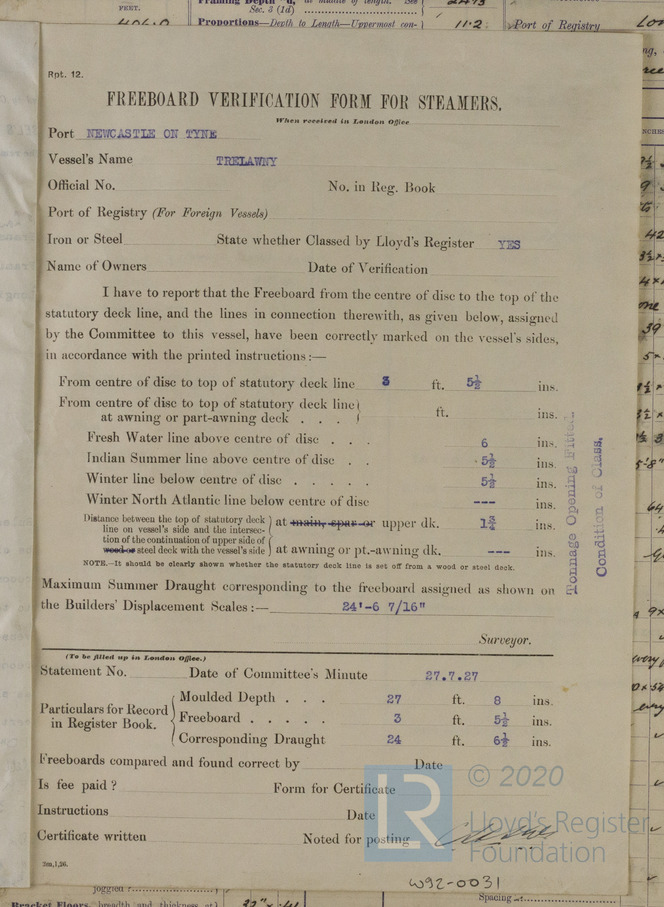 FEET.
Framing Depth "d, at middle of length. See
Sec. 3 (1d)
Proportions—Depth to Length—Uppermost con-
11·2
Port of Registry
Rpt. 12.
FREEBOARD VERIFICATION FORM FOR STEAMERS.
When received in London Office
Port NEWCASTLE ON TYNE
Vessel's Name TRELAWNY
Official No. No. in Reg. Book
Port of Registry (For Foreign Vessels)
Iron or Steel State whether Classed by Lloyd's Register YES
Name of Owners Date of Verification
I have to report that the Freeboard from the centre of disc to the top of the
statutory deck line, and the lines in connection therewith, as given below, assigned
by the Committee to this vessel, have been correctly marked on the vessel's sides,
in accordance with the printed instructions :—
From centre of disc to top of statutory deck line 3 ft. 5½ ins.
From centre of disc to top of statutory deck line
at awning or part-awning deck . . . ft. ins.
Fresh Water line above centre of disc . . . 6 ins.
Indian Summer line above centre of disc . . 5½ ins.
Winter line below centre of disc . . . . . 5½ ins.
Winter North Atlantic line below centre of disc --- ins.
Distance between the top of statutory deck
line on vessel's side and the intersec-
tion of the continuation of upper side of
wood or steel deck with the vessel's side
at main, spar or upper dk. 1¾ ins.
at awning or pt.-awning dk. --- ins.
NOTE.—It should be clearly shown whether the statutory deck line is set off from a wood or steel deck.
Tonnage Opening Fitted.
Condition of Class.
Maximum Summer Draught corresponding to the freeboard assigned as shown on
the Builders' Displacement Scales :— 24'-6 7/16"
Surveyor.
(To be filled up in London Office.)
Statement No. Date of Committee's Minute 27.7.27
Particulars for Record
in Register Book.
Moulded Depth . . . 27 ft. 8 ins.
Freeboard . . . . . 3 ft. 5½ ins.
Corresponding Draught 24 ft. 6½ ins.
Freeboards compared and found correct by Date
Is fee paid ? Form for Certificate
Instructions Date
Certificate written Noted for posting
3m,1,26.
LR
© 2020
Lloyd's Register
Foundation
W92-0031
joggled ?
Bracket Floors, breadth and thickness at
Spacing